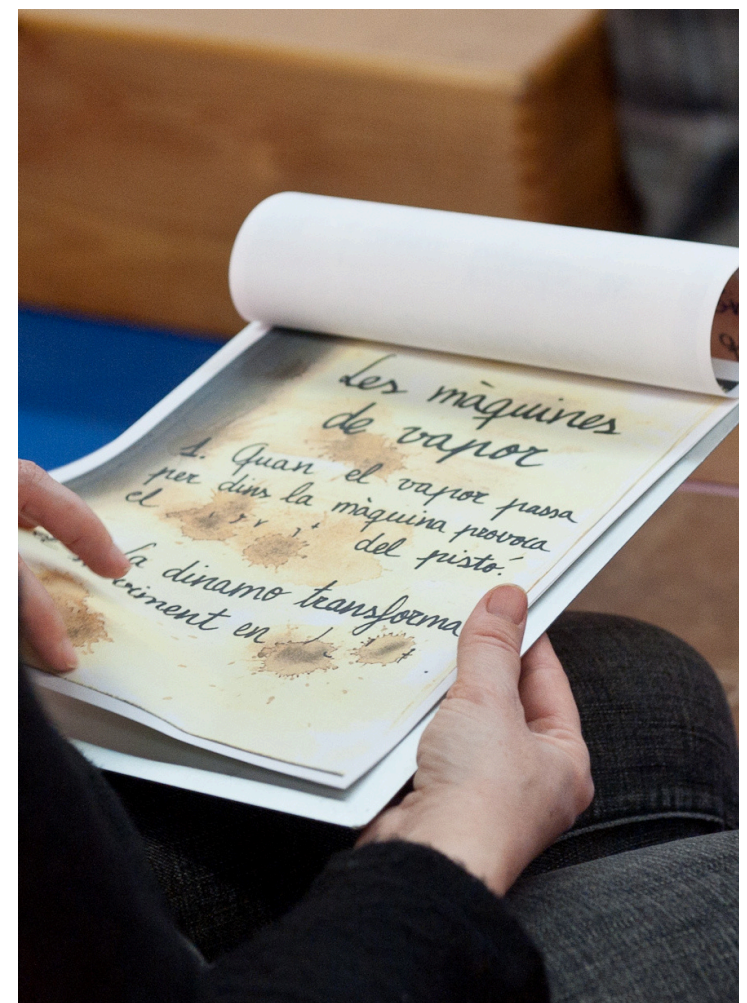 Les màquines
de vapor
1. Quan el vapor passa
per dins la màquina provoca
el del pistó.
la dinamo transforma
en